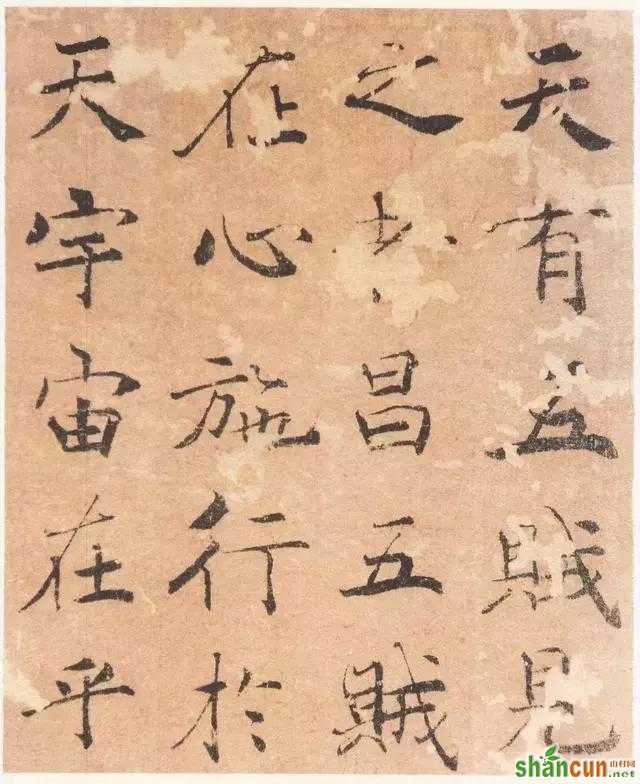 天有五賊見
之者昌五賊
在心施行於
天宇宙在乎
shancun
山村网
.net